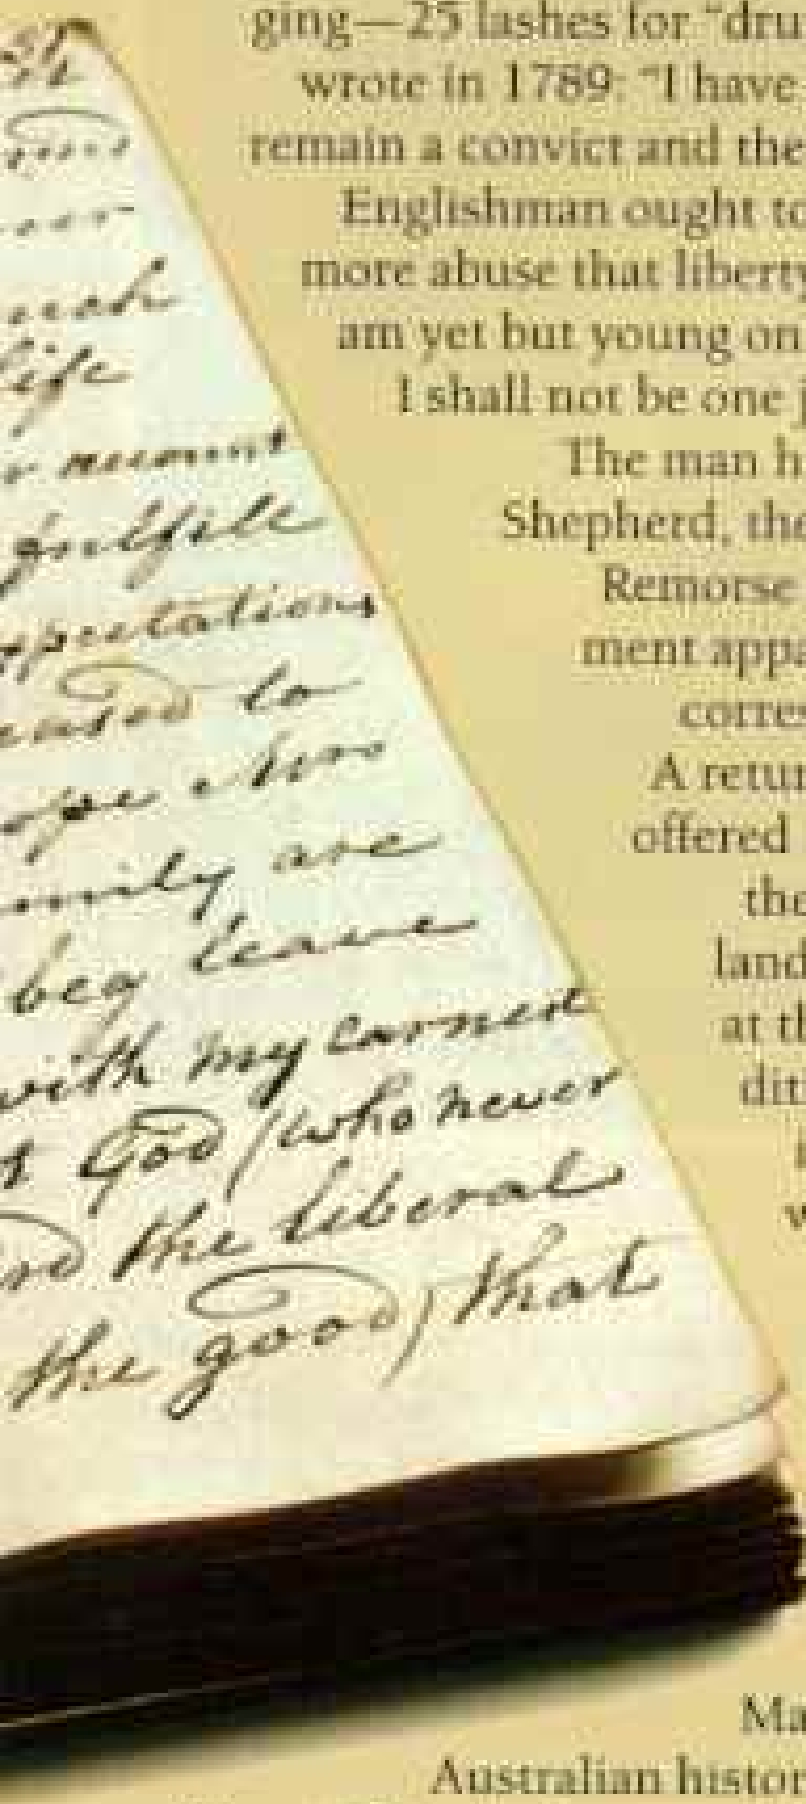 ging—25 lashes for "dru
wrote in 1789: "I have
remain a convict and the
Englishman ought to
more abuse that liberty
am yet but young on
I shall not be one j
The man h
Shepherd, the
Remorse
ment appa
corres
A retur
offered
the
land
at th
dit
w
Ma
Australian histor
life
account
fulfill
to
are
beg leave
with my earnest
God (who never
the liberal
the good) that